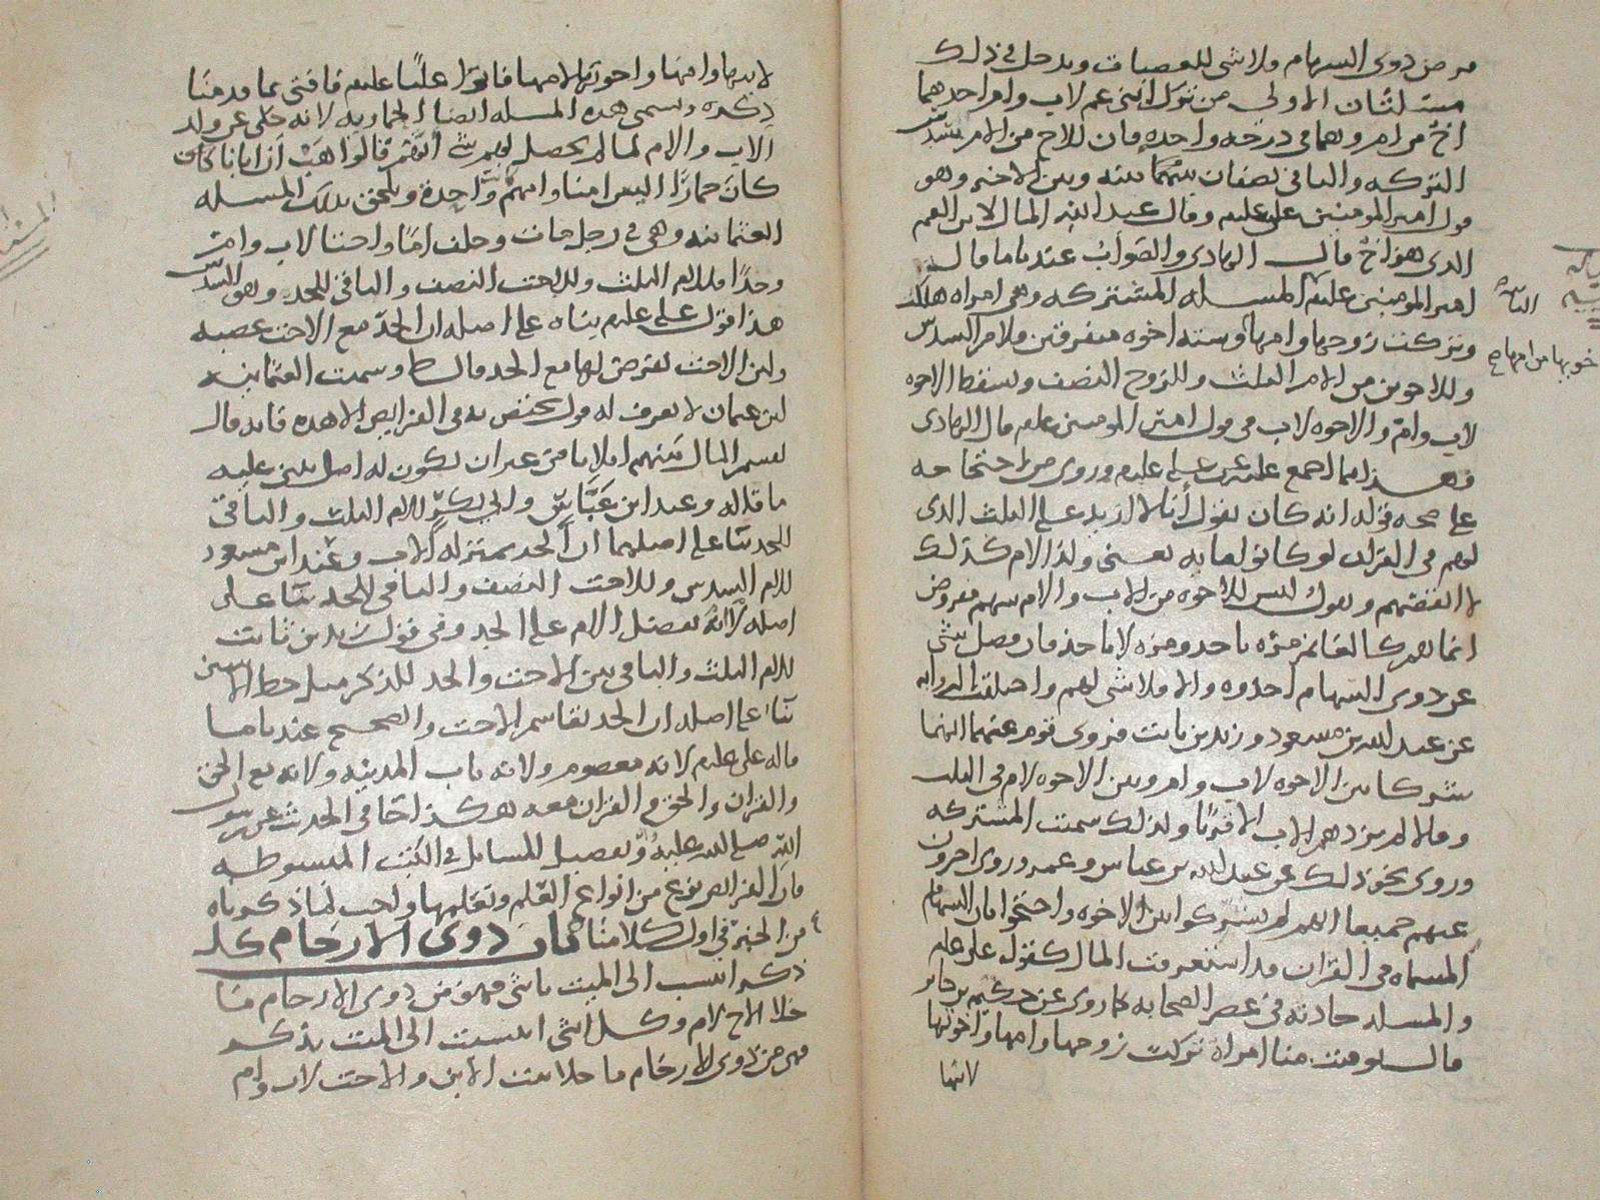 من ذوى السهام ولاشى للعصبات ويدخل فى ذلك
مسئلتان الاولى من ترك ابنى عم لاب وام احدهما
اخ من ام وهما فى درجه واحده فان للاخ من الام سدس
التركه والباقى نصفان بينه وبين الاخر وهو
قول امير المومنين على عليلم وقال عبد الله المال لابن العم
الذى هو اخ قال الهادى والصواب عندنا ما قال
امير المومنين عليلم المسله المشتركه وهى امراه هلكت
وتركت زوجها وامها وسته اخوه متفرقين فللام السدس
وللاخوين من الام الثلث وللزوج النصف وسقط الاخوه
لاب وام والاخوه لاب فى قول امير المومنين عليلم قال الهادى
فهذا مما اجمع عليه عن على عليلم وروى من احتجاجه
على صحه قوله انه كان يقول انا لا ازيد على الثلث الذى
لهم فى القران لو كانوا مايه يعنى ولد الام كذلك
لا انقصهم ويقول ليس للاخوه من الاب والام سهم مفروض
انما لهم مره ياخذ ومره لا ياخذ فان فضل شى
عن ذوى السهام اخذوه والا فلاشى لهم واختلفت الروايه
عن عبد الله بن مسعود وزيد بن ثابت فروى قوم عنهما انهما
شركا بين الاخوه لاب وام وبين الاخوه لام فى الثلث
وقالا لم يزدهم الاب الا قربا ولذلك سميت المشتركه
وروى نحو ذلك عن عبد الله بن عباس وعمر وروى اخرون
عنهم جميعا انهم لم يشركوا بين الاخوه واحتجوا بان السهام
المسماه فى القران قد استغرقت المال كقول على عليلم
والمسله حادثه فى عصر الصحابه كما روى عن حكيم بن جابر
قال ماتت منا امراه تركت زوجها وامها واخوتها
لابيها
لابيها وامها واخوتها لامها فاتوا عليا عليلم فافتى بما قدمنا
ذكره وتسمى هذه المسله ايضا الحماريه لانه حكى عن ولد
الاب والام لما لم يحصل لهم شى انهم قالوا هب ان ابانا كان
كان حمارا اليس امنا وامهم واحدة ويلحق بذلك المسله
العثمانيه وهى فى رجل مات وخلف اما واختا لاب وام
وجدا فللام الثلث وللاخت النصف والباقى للجد وهو السدس
هذا قول على عليلم بناه على اصله ان الجد مع الاخت عصبه
ولان الاخت يفرض لها مع الجد قال ط وسميت العثمانيه
لان عثمان لا يعرف له قول يختص به فى الفرايض الا هذه فانه قال
يقسم المال بينهم اثلاثا من غير ان يكون له اصل يبنى عليه
ما قاله وعند ابن عباس وابى بكر للام الثلث والباقى
للجد بنا على اصلهما ان الجد بمنزله الاب وعند ابن مسعود
للام السدس وللاخت النصف والباقى للجد بنا على
اصله لا يفضل الام على الجد وفى قول زيد بن ثابت
للام الثلث والباقى بين الاخت والجد للذكر مثل حظ الانثيين
بنا على اصله ان الجد يقاسم الاخت والصحيح عندنا ما
قاله على عليلم لانه معصوم ولانه باب المدينه ولانه مع الحق
والقران والحق والقران معه هكذا فى الحديث عن رسول
الله صلى الله عليه وتفصيل المسايل فى الكتب المبسوطه
فان الفرايض نوع من انواع العلم وتعلمها واجب لما ذكرناه
من الخبر فى اول كلامنا باب ذوى الارحام كل
ذكر انتسب الى الميت بانثى فهو من ذوى الارحام ما
خلا الاخ لام وكل انثى انتسبت الى الميت بذكر
فهى من ذوى الارحام ما خلا بنت الابن والاخت لاب وام